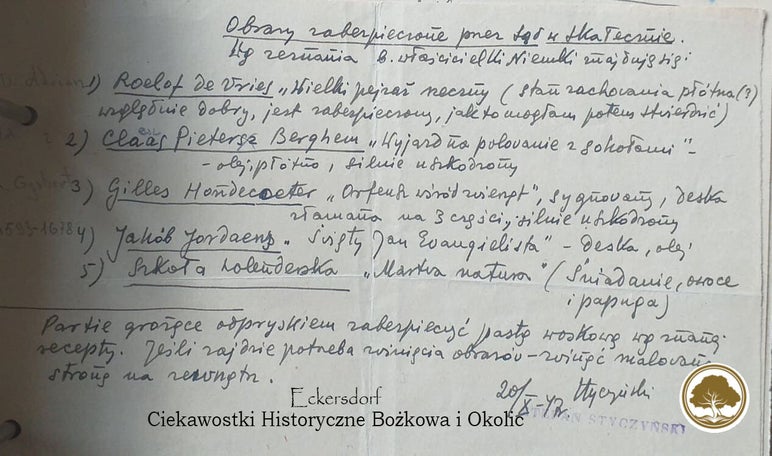 Obrazy zabezpieczone przez Sąd w Skałecznie.
Wg zeznania b. właścicielki Niemki znajdują się
1) Roelof de Vries „Wielki pejzaż rzeczny (stan zachowania płótna(?)
względnie dobry, jest zabezpieczony, jak to mogłam potem stwierdzić)
2) Claas Pietersz Berghem „Wyjazd na polowanie z sokołami" -
- olej, płótno, silnie uszkodzony
3) Gilles Hondecoeter „Orfeusz wśród zwierząt", sygnowany, deska
złamana na 3 części, silnie uszkodzony
1593-1678 4) Jakób Jordaens „Święty Jan Evangielista" - deska, olej
5) Szkoła holenderska „Martwa natura" (Śniadanie, owoce
i papuga)
Partie grożące odpryskiem zabezpieczyć pastą woskową wg znanej
recepty. Jeśli zajdzie potrzeba zwinięcia obrazów - zwinąć malowaną
stroną na zewnątrz.
20/X-47r Styczyński
STEFAN STYCZYŃSKI
Eckersdorf
Ciekawostki Historyczne Bożkowa i Okolic